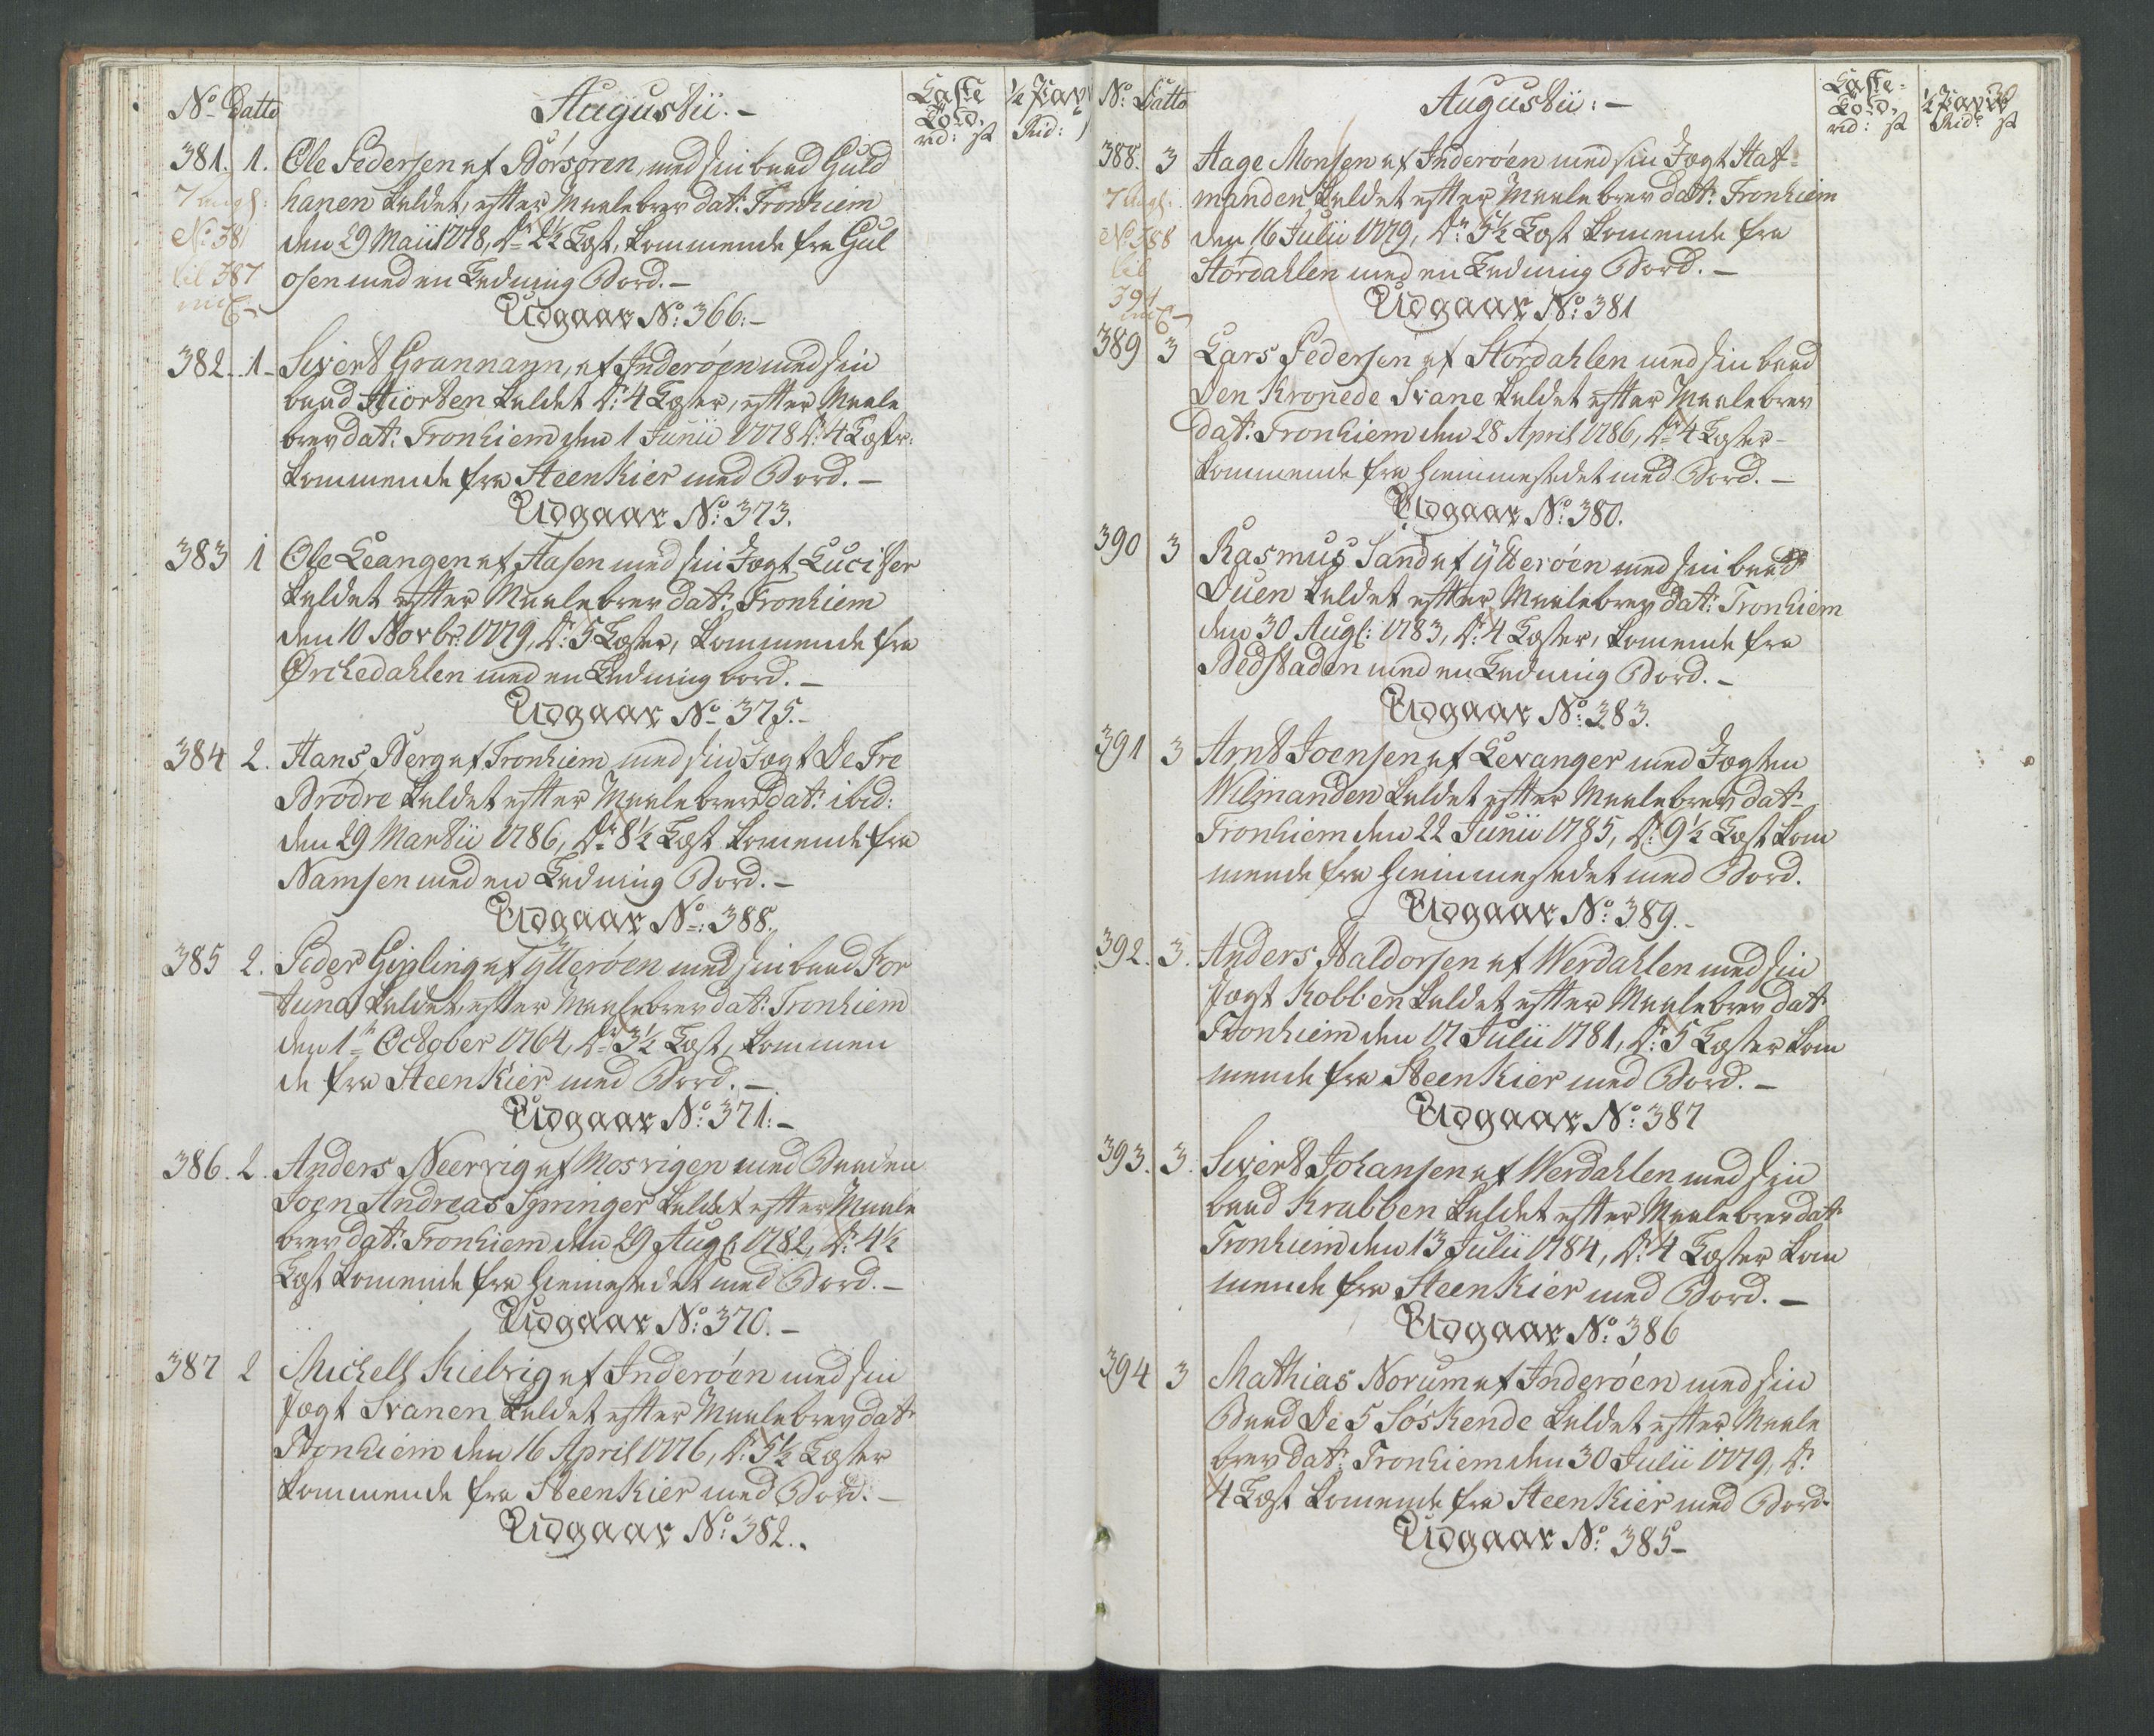 No Datto Augustii. –
Læste Told.
rd: st
½ Parc
Rid:
381. 1. Ole Pedersen af Börsören, med sin baad Guld
7 Augs: hanen kaldet, efter Maalebrev dat: Tronhiem
No: 381 den 29 Maii 1778, Dr: 2½ Læst, kommende fra Gul
til 387 osen med en Ladning Bord. –
Udgaar No: 366: –
382. 1. Sivert Grannann, af Inderöen med sin
baad Hiorten kaldet Dr: 4 Læster, efter Maale
brev dat: Tronhiem den 1 Junii 1778 Dr: 4 Læster:
kommende fra Steenkier med Bord. –
Udgaar No: 373.
383 1 Ole Leangen af Aasen med sin Jagt Lucifer
kaldet efter Maalebrev dat: Tronhiem
den 10 Novbr: 1779, Dr: 5 Læster, kommende fra
Orchedahlen med en Ladning bord. –
Udgaar No 375. –
384 2. Hans Berg af Tronhiem med sin Jagt De Tre
Brödre kaldet efter Maalebrev dat: ibid:
den 29 Martii 1786, Dr 8½ Læst komende fra
Namsen med en Ladning Bord. –
Udgaar No: 388.
385 2. Peder Gipling af Ytteröen med sin baad For
tuna kaldet, efter Maalebrev dat: Tronhiem
den 1te October 1764, Dr 3½ Læst, kommen
de fra Steenkier med Bord. –
Udgaar No: 371: –
386. 2. Anders Neervig af Mosvigen med Baaden
Joen Andreas Springer kaldet efter Maale
brev dat: Tronhiem den 29 Augs: 1782, Dr: 4½
Læst komende fra Hiemestedet med Bord. –
Udgaar No: 370. –
387 2 Michell Kielvig af Inderöen med sin
Jagt Svanen kaldet efter Maalebrev dat:
Tronhiem den 16 April 1776, Dr: 5½ Læster
kommende fra Steenkier med Bord. –
Udgaar No: 382..
No: Datto Augustii: –
Læste-
Told,
rd: st
½ Parc
Rid: st
388. 3 Aage Monsen af Inderöen med sin Jagt Hat-
7 Augs: manden kaldet efter Maalebrev dat: Tronhiem
No: 388 den 16 Julii 1779, Dr: 5½ Læst komende fra
til Stördahlen med en Ladning Bord. –
394 Udgaar No: 381
389 3 Lars Pedersen af Stördahlen med sin baad
Den Kronede Svane kaldet efter Maalebrev
dat: Tronhiem den 28 April 1786, Dr 4 Læster –
kommende fra Hiemmestedet med Bord. –
Udgaar No: 380.
390 3 Rasmus Sand af Ytteröen med sin baad
Duen kaldet efter Maalebrev dat: Tronhiem
den 30 Augs: 1783, Dr: 4 Læster, komende fra
Bedstaden med en Ladning Bord. –
Udgaar No: 383.
391 3 Arnt Joensen af Levanger med Jagten
Wilmanden kaldet efter Maalebrev dat:
Tronhiem den 22 Junii 1785, Dr: 9½ Læst kom
mende fra Hiemmestedet med Bord.
Udgaar No: 389. –
392. 3. Anders Haldorsen af Werdahlen med sin
Jagt Kobben kaldet efter Maalebrev dat
Tronhiem den 17 Julii 1781, Dr: 5 Læster kom
mende fra Steenkier med Bord. –
Udgaar No: 387
393. 3. Sivert Johansen af Werdahlen med sin
baad Krabben kaldet efter Maalebrev dat:
Tronhiem den 13 Julii 1784, Dr: 4 Læster kom
mende fra Steenkier med Bord. –
Udgaar No: 386
394 3 Mathias Norum af Inderöen med sin
Baad De 5 Söskende kaldet efter Maale
brev dat: Tronhiem den 30 Julii 1779, Dr:
4 Læst komende fra Steenkier med Bord.
Udgaar No: 385 –